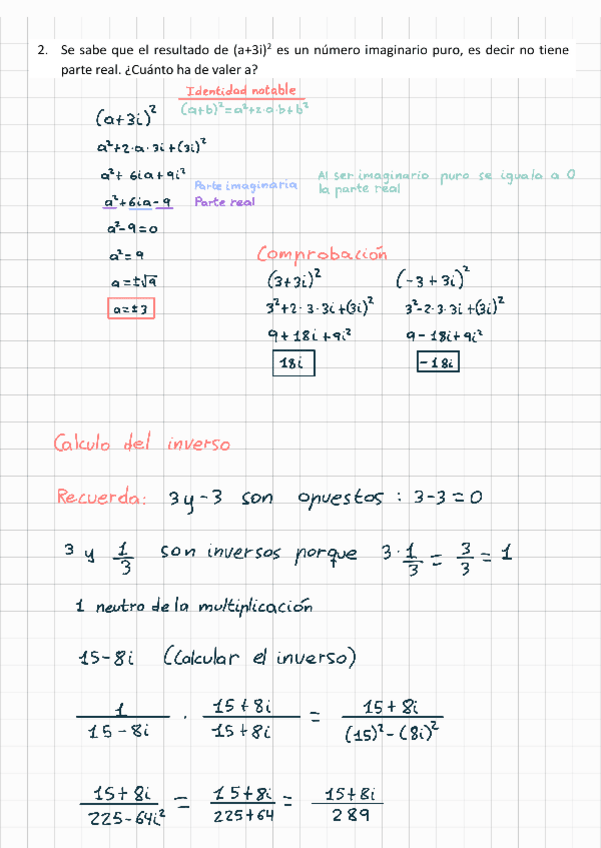 2. Se sabe que el resultado de (a+3i)² es un número imaginario puro, es decir no tiene
parte real. ¿Cuánto ha de valer a?
Identidad notable
(a+b)²=a²+2·a·b+b²
(a+3i)²
a²+2·a·3i+(3i)²
a²+6ia+9i²
Al ser imaginario puro se iguala a 0
la parte real
Parte imaginaria
a²+6ia-9 Parte real
a²-9=0
a²=9
a=±√9
a=±3
Comprobación
(3+3i)² (-3+3i)²
3²+2·3·3i+(3i)² 3²-2·3·3i+(3i)²
9+18i+9i² 9-18i+9i²
18i -18i
Calculo del inverso
Recuerda: 3 y -3 son opuestos : 3-3=0
3 y 1/3 son inversos porque 3·1/3 = 3/3 = 1
1 neutro de la multiplicación
15-8i (Calcular el inverso)
1/(15-8i) · (15+8i)/(15+8i) = (15+8i)/((15)²-(8i)²)
(15+8i)/(225-64i²) = (15+8i)/(225+64) = (15+8i)/289